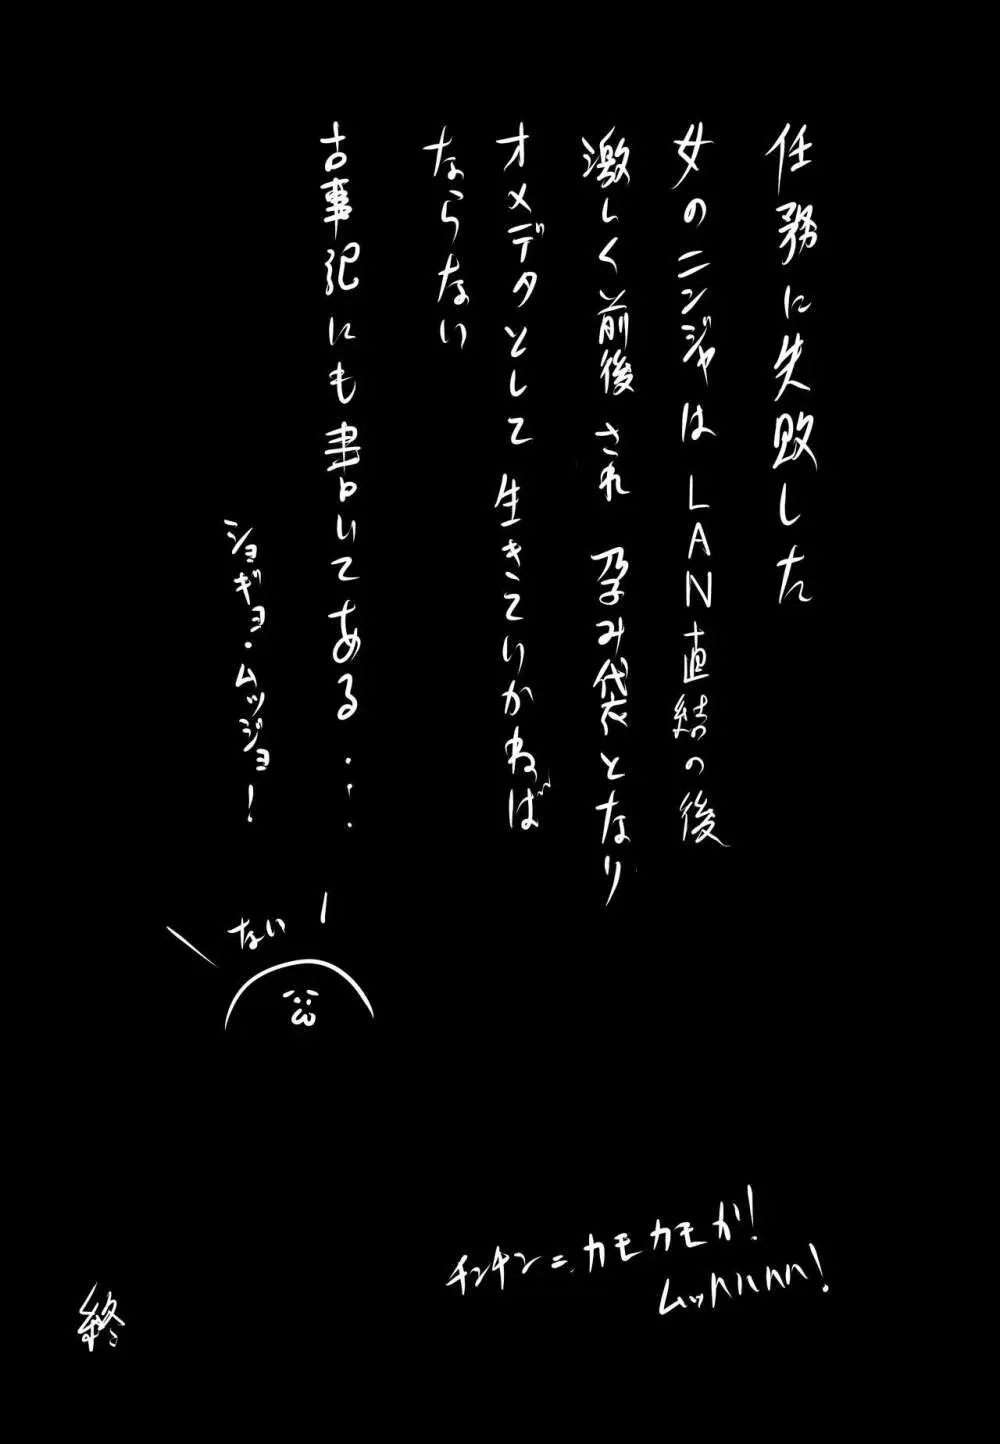 任務に失敗した
女のニンジャはLAN直結の後
激しく前後され 孕み袋となり
オメデタとして生きていかねば
ならない
古事記にも書いてある・・・
ショギョ・ムッジョ!
ない
カモカモか!
ムッハハハハ!
終